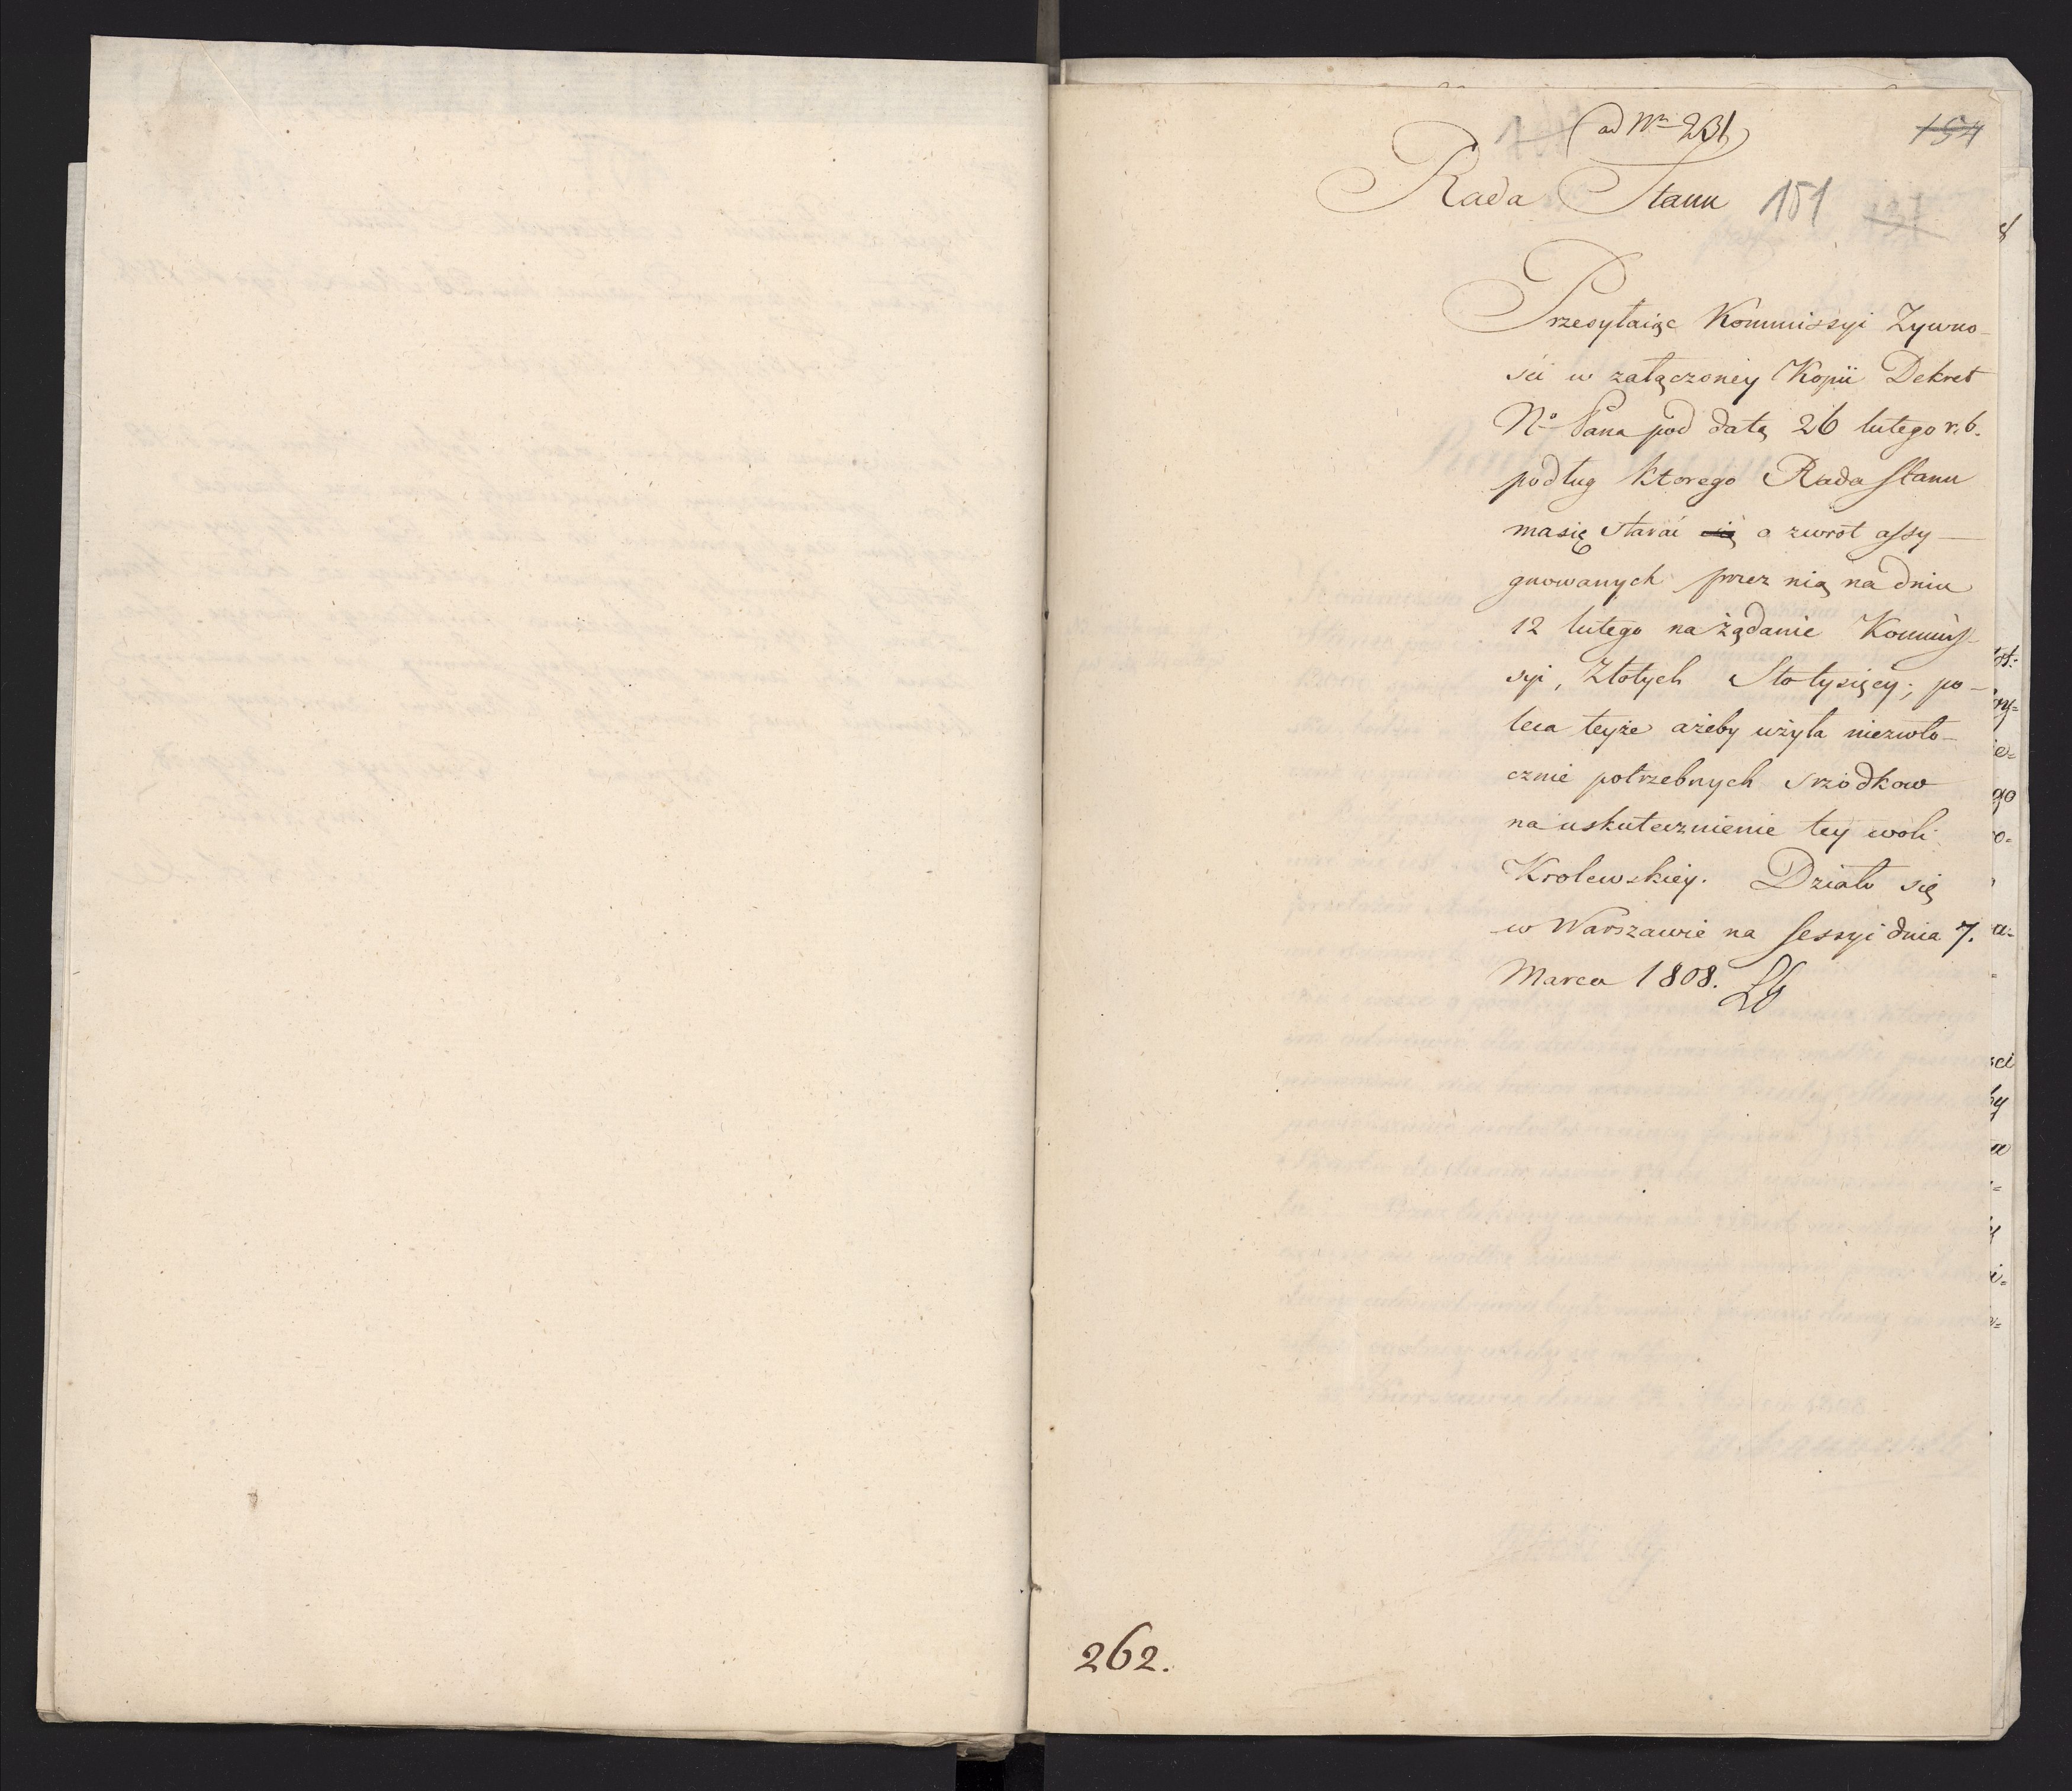 ad Nrm 231
154
Rada Stanu 151
Przesyłaiąc Kommissyi Zywno-
ści w załączoney Kopii Dekret
No Pana pod datą 26 lutego r. b.
podług ktorego Rada Stanu
ma się starać się o zwrot assy-
gnowanych przez nią na dniu
12 lutego na żądanie Kommis-
syi, Złotych Stotysięcy; po-
leca teyże ażeby użyła niezwło-
cznie potrzebnych srzodkow
na uskutecznienie tey woli
Krolewskiey. Działo się
w Warszawie na sessyi dnia 7.
Marca 1808.
262.